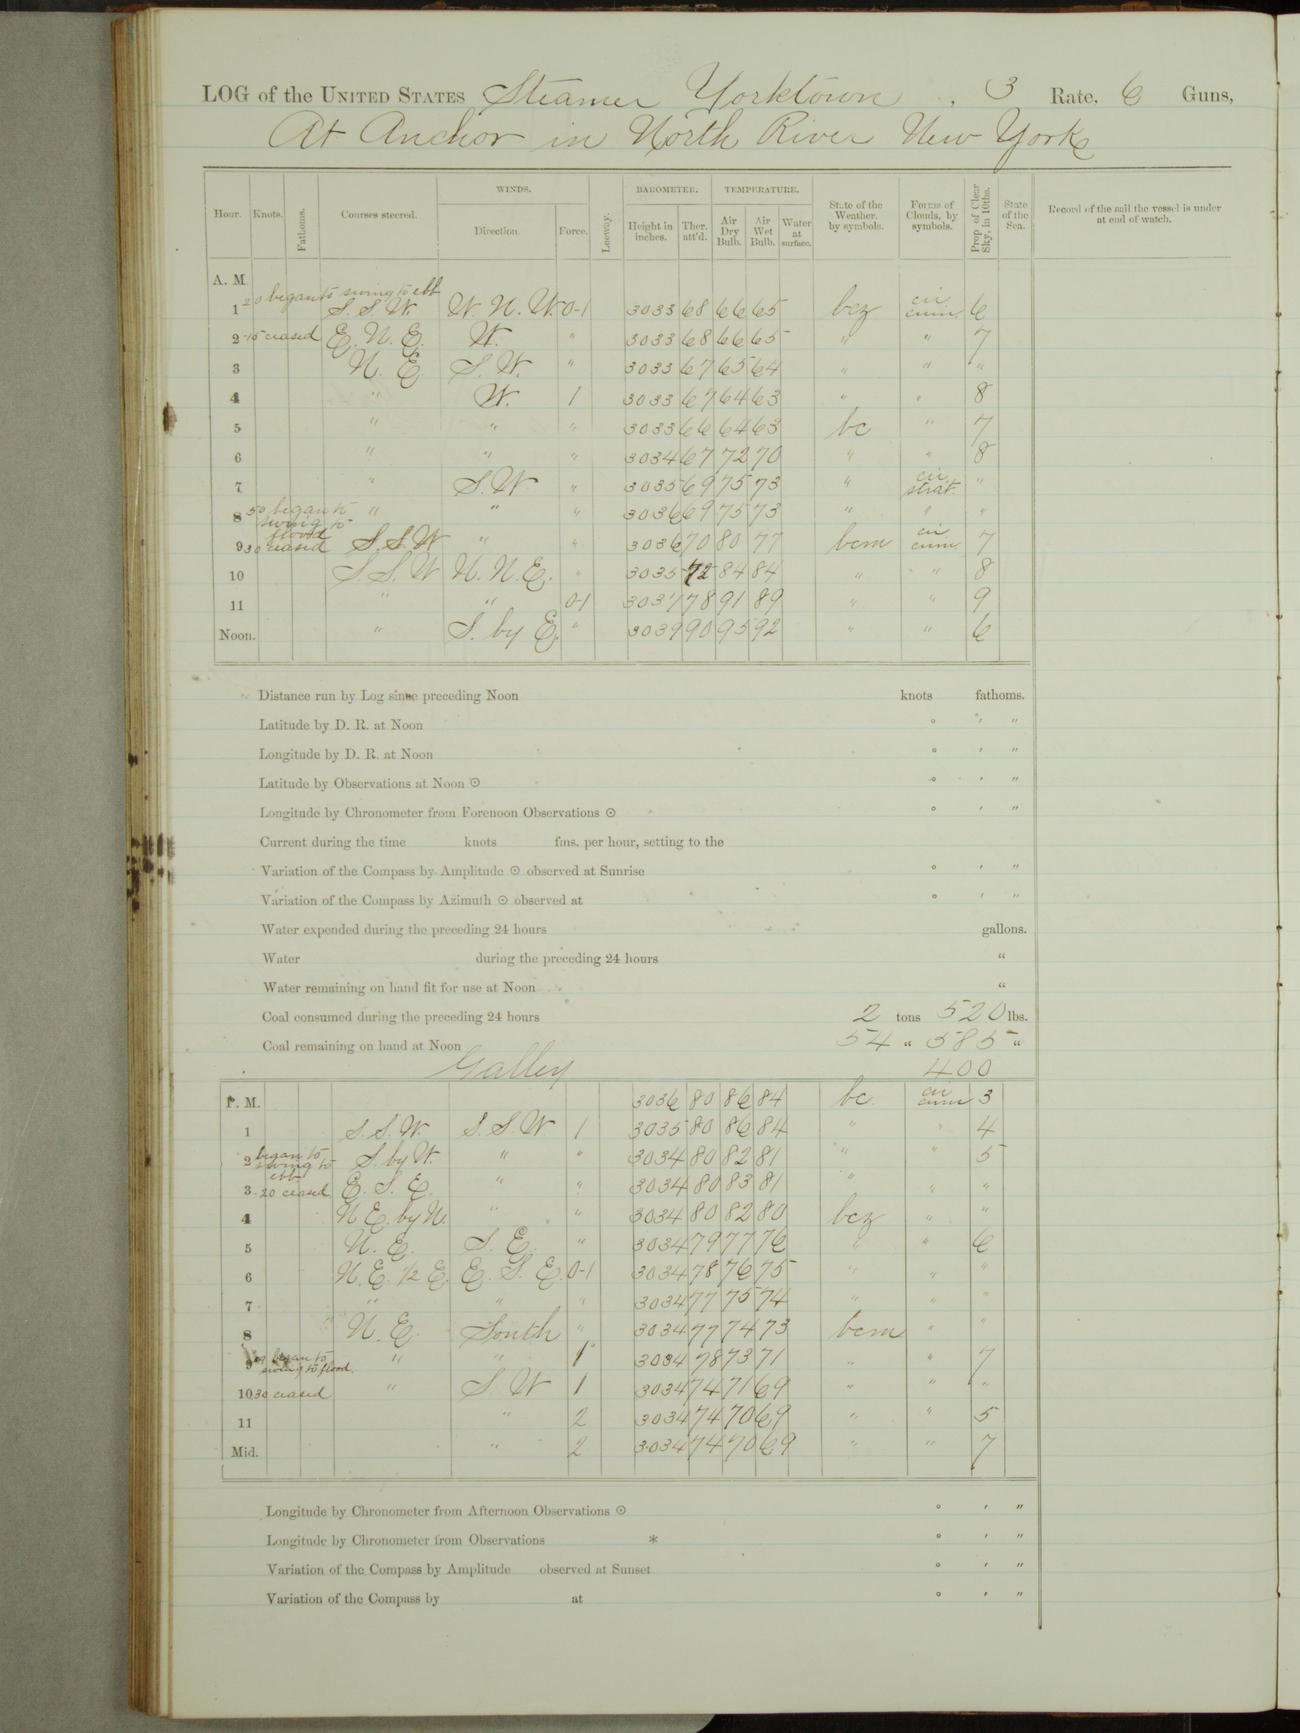 LOG of the UNITED STATES Steamer Yorktown , 3 Rate, 6 Guns,
At Anchor in North River New York
Hour. Knots. Fathoms. Courses steered. WINDS. Direction. Force. Leeway. BAROMETER. Height in inches. Ther. att'd. TEMPERATURE. Air Dry Bulb. Air Wet Bulb. Water at surface. State of the Weather, by symbols. Forms of Clouds, by symbols. Prop of Clear Sky, in 10ths. State of the Sea. Record of the sail the vessel is under at end of watch.
A. M.
20 began to swing to ebb
1 S. S. W. W. N. W. 0-1 3033 68 66 65 bcz cir cum 6
2 15 ceased E. N. E. W. " 3033 68 66 65 " " 7
3 N. E. S. W. " 3033 67 65 64 " " "
4 " W. 1 3033 67 64 63 " " 8
5 " " " 3033 66 64 63 bc " 7
6 " " " 3034 67 72 70 " " 8
7 " S. W " 3035 69 75 73 " cir strat. "
8 50 began to swing to flood " " " 3036 69 75 73 " " "
9 30 ceased S. S. W " " 3036 70 80 77 bcm cir cum 7
10 S. S. W N. N. E. " 3035 72 84 84 " " 8
11 " " 0-1 3037 78 91 89 " " 9
Noon. " S. by E. " 3039 90 95 92 " " 6
Distance run by Log since preceding Noon knots fathoms.
Latitude by D. R. at Noon ° ' "
Longitude by D. R. at Noon ° ' "
Latitude by Observations at Noon ☉ ° ' "
Longitude by Chronometer from Forenoon Observations ☉ ° ' "
Current during the time knots fms. per hour, setting to the
Variation of the Compass by Amplitude ☉ observed at Sunrise ° ' "
Variation of the Compass by Azimuth ☉ observed at ° ' "
Water expended during the preceding 24 hours gallons.
Water during the preceding 24 hours "
Water remaining on hand fit for use at Noon "
Coal consumed during the preceding 24 hours 2 tons 520 lbs.
Coal remaining on hand at Noon 54 " 585 "
Galley 400
P. M. 3036 80 86 84 bc cir cum 3
1 S. S. W. S. S. W 1 3035 80 86 84 " " 4
2 began to swing to ebb S. by W. " " 3034 80 82 81 " " 5
3 20 ceased E. S. E. " " 3034 80 83 81 " " "
4 N E. by N. " " 3034 80 82 80 bcz " "
5 N. E. S. E. " 3034 79 77 76 " " 6
6 N. E. 1/2 E. E. S. E. 0-1 3034 78 76 75 " " "
7 " " " 3034 77 75 74 " " "
8 N. E. South " 3034 77 74 73 bcm " "
9 began to swing to flood. " " 1 3034 78 73 71 " " 7
10 30 ceased " S. W 1 3034 74 71 69 " " "
11 " 2 3034 74 70 69 " " 5
Mid. " 2 3034 74 70 69 " " 7
Longitude by Chronometer from Afternoon Observations ☉ ° ' "
Longitude by Chronometer from Observations * ° ' "
Variation of the Compass by Amplitude observed at Sunset ° ' "
Variation of the Compass by at ° ' "